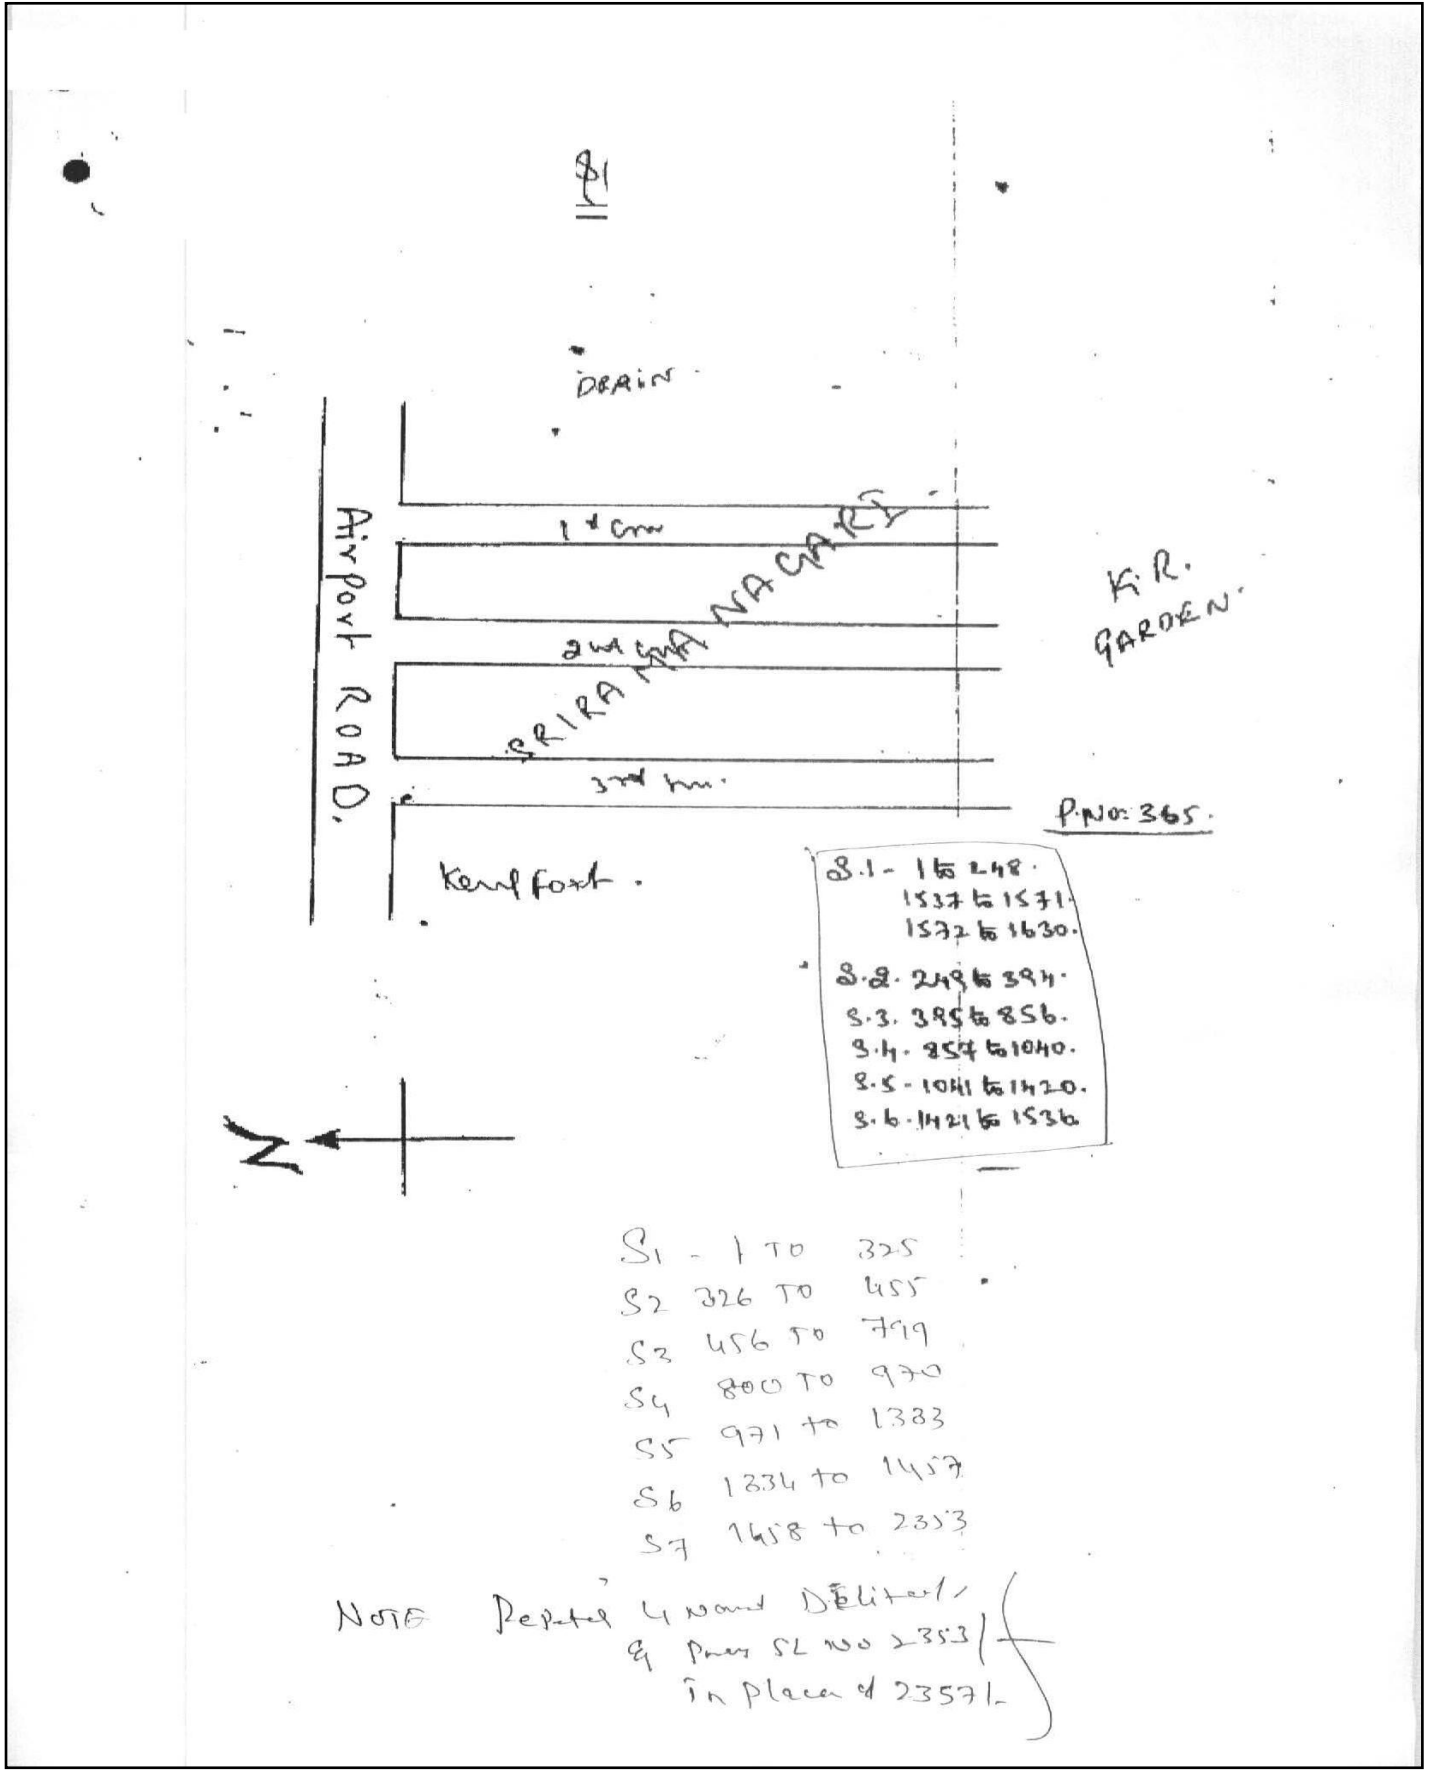 S1
DRAIN.
Airport ROAD.
1st Cross
SRIRAMA NAGARI
2nd Cross
3rd
K.R.
GARDEN.
P.No: 365.
Kemp Fort.
S.1- 1 to 248.
1537 to 1571.
1572 to 1630.
S.2. 249 to 394.
S.3. 395 to 856.
S.4. 857 to 1040.
S.5 - 1041 to 1420.
S.6. 1421 to 1536
N
S1 - 1 TO 325
S2 326 TO 455
S3 456 TO 799
S4 800 TO 970
S5 971 to 1333
S6 1334 to 1457
S7 1458 to 2353
NOTE 4 Deleted
& SL NO 2353/
in place of 2357/-